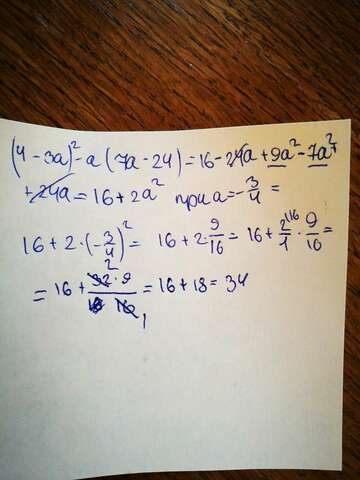 (4 - 3a)² - a (7a - 24) = 16 - 24a + 9a² - 7a² +
+ 24a = 16 + 2a² при a = - 3/4 =
16 + 2 · (- 3/4)² = 16 + 2 · 9/16 = 16 + 2^16/1 · 9/16 =
= 16 + 32 · 9 / 16 = 16 + 18 = 34